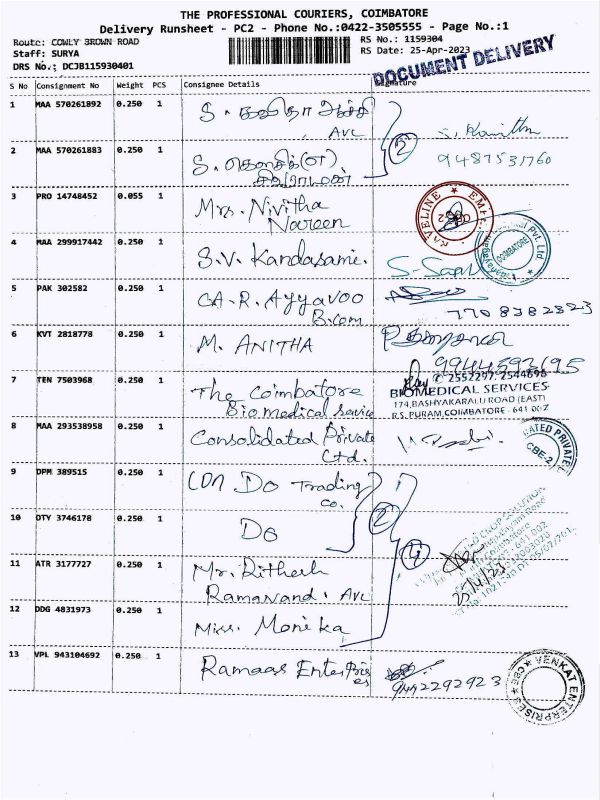 THE PROFESSIONAL COURIERS, COIMBATORE
Delivery Runsheet - PC2 - Phone No.:0422-3505555 - Page No.:1
Route: COWLY BROWN ROAD
RS No.: 1159304
Staff: SURYA
RS Date: 25-Apr-2023
DRS No.: DCJB115930401
DOCUMENT DELIVERY
S No Consignment No Weight PCS Consignee Details Signature
1 MAA 570261892 0.250 1 S. கவிதா
AVL
2
2 MAA 570261883 0.250 1 S.
9487531760
3 PRO 14748452 0.055 1 Mrs. Nivitha
Nareen
4 MAA 299917442 0.250 1 S.V. Kandasami.
COIMBATORE
5 PAK 302582 0.250 1 CA. R. Ayyavoo
B.com
7708382823
6 KVT 2818778 0.250 1 M. ANITHA
9944593195
7 TEN 7503968 0.250 1 The Coimbatore
Biomedical Service
2552297, 2544696
BIOMEDICAL SERVICES
174, BASHYAKARALU ROAD (EAST)
R.S. PURAM, COIMBATORE - 641 002
8 MAA 293538958 0.250 1 Consolidated Private
Ltd.
CBE-2
9 DPM 389515 0.250 1 Do Trading
Co.
10 OTY 3746178 0.250 1 Do
2
4
25/4/23
11 ATR 3177727 0.250 1 Mr. Rithesh
Ramanand. AVL
12 DDG 4831973 0.250 1 Miss. Monika
13 VPL 943104692 0.250 1 Ramaas Enterprises
9442292923
VENKAT ENTERPRISES
CBE